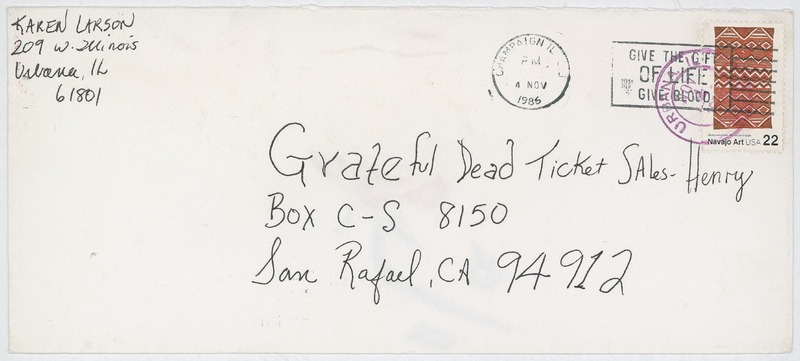 KAREN LARSON
209 W. Illinois
Urbana, IL
61801
CHAMPAIGN IL
PM
4 NOV
1986
GIVE THE GIFT
OF LIFE
GIVE BLOOD
URBAN
Navajo Art USA 22
Grateful Dead Ticket SAles- Henry
Box C-S 8150
San Rafael, CA 94912